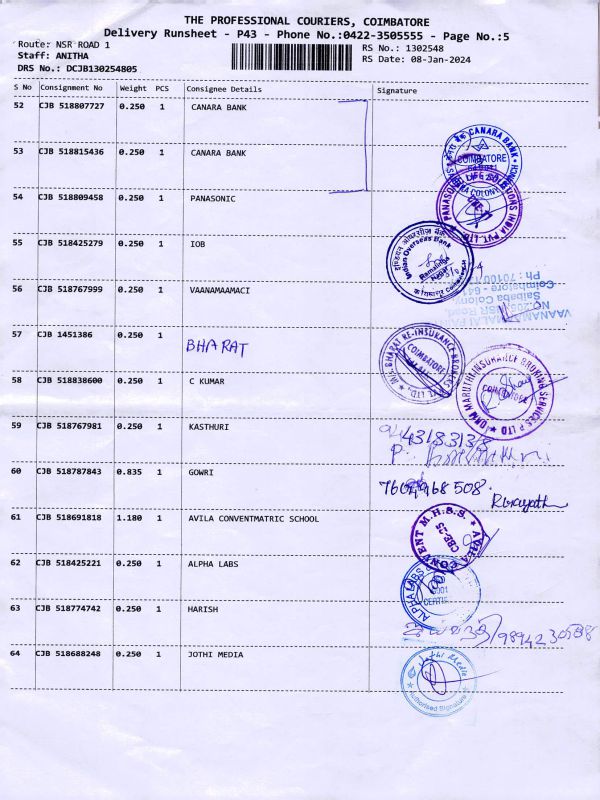 THE PROFESSIONAL COURIERS, COIMBATORE
Delivery Runsheet - P43 - Phone No.:0422-3505555 - Page No.:5
Route: NSR ROAD 1
RS No.: 1302548
Staff: ANITHA
RS Date: 08-Jan-2024
DRS No.: DCJB130254805
S No Consignment No Weight PCS Consignee Details Signature
52 CJB 518807727 0.250 1 CANARA BANK
53 CJB 518815436 0.250 1 CANARA BANK
CANARA BANK
COIMBATORE
54 CJB 518809458 0.250 1 PANASONIC
55 CJB 518425279 0.250 1 IOB
इण्डियन ओवरसीज़ बैंक
Indian Overseas Bank
56 CJB 518767999 0.250 1 VAANAMAAMACI
Saibaba Colony
57 CJB 1451386 0.250 1 BHARAT
M/s. BHARAT RE-INSURANCE BROKERS P. LTD.
COIMBATORE
58 CJB 518838600 0.250 1 C KUMAR
MARUTHI INSURANCE BROKING SERVICES P LTD
COIMBATORE
59 CJB 518767981 0.250 1 KASTHURI
60 CJB 518787843 0.835 1 GOWRI
61 CJB 518691818 1.180 1 AVILA CONVENTMATRIC SCHOOL
AVILA CONVENT M.H.S.S.
CBE-25
62 CJB 518425221 0.250 1 ALPHA LABS
ALPHA LABS
63 CJB 518774742 0.250 1 HARISH
64 CJB 518688248 0.250 1 JOTHI MEDIA
Jothi Media
Authorised Signature